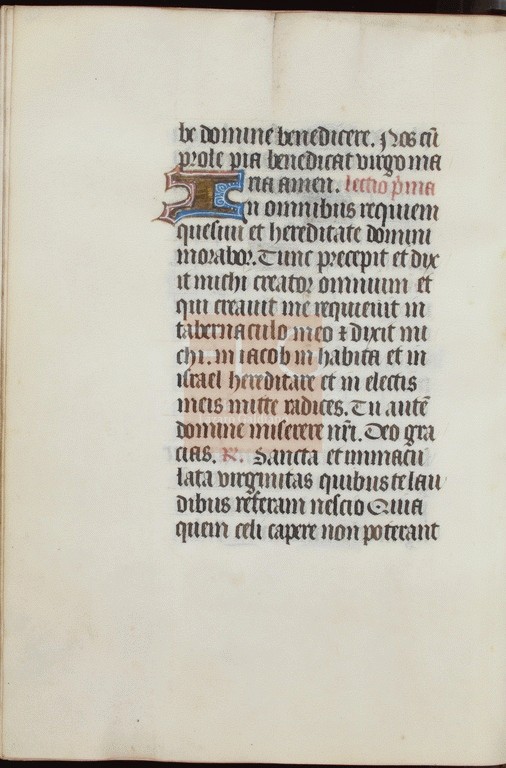 be domine benedicere. Nos cū
prole pia benedicat virgo ma
ria amen. Lectio p̄ma
In omnibus requiem
quesiui et hereditate domini
morabor. Tunc precepit et dix
it michi creator omnium et
qui creauit me requieuit in
tabernaculo meo ⁊ dixit mi
chi. in iacob in habita et in
israel hereditare et in electis
meis mitte radices. Tu autē
domine miserere nr̄i. Deo gra
cias. R͛. Sancta et immacu
lata virginitas quibus te lau
dibus referam nescio Quia
quem celi capere non poterant